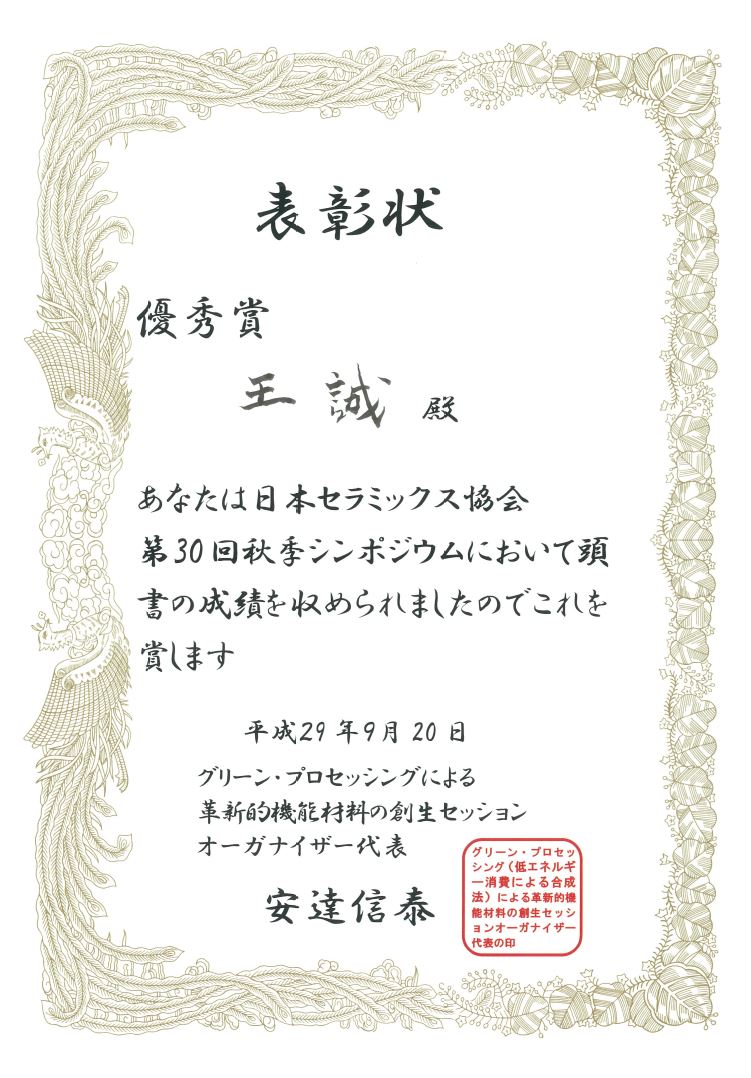 表彰状
優秀賞
王 誠 殿
あなたは日本セラミックス協会
第30回秋季シンポジウムにおいて頭
書の成績を収められましたのでこれを
賞します
平成29年9月20日
グリーン・プロセッシングによる
革新的機能材料の創生セッション
オーガナイザー代表
安達信泰
グリーン・プロセッ
シング（低エネルギ
ー消費による合成
法）による革新的機
能材料の創生セッシ
ョンオーガナイザー
代表の印